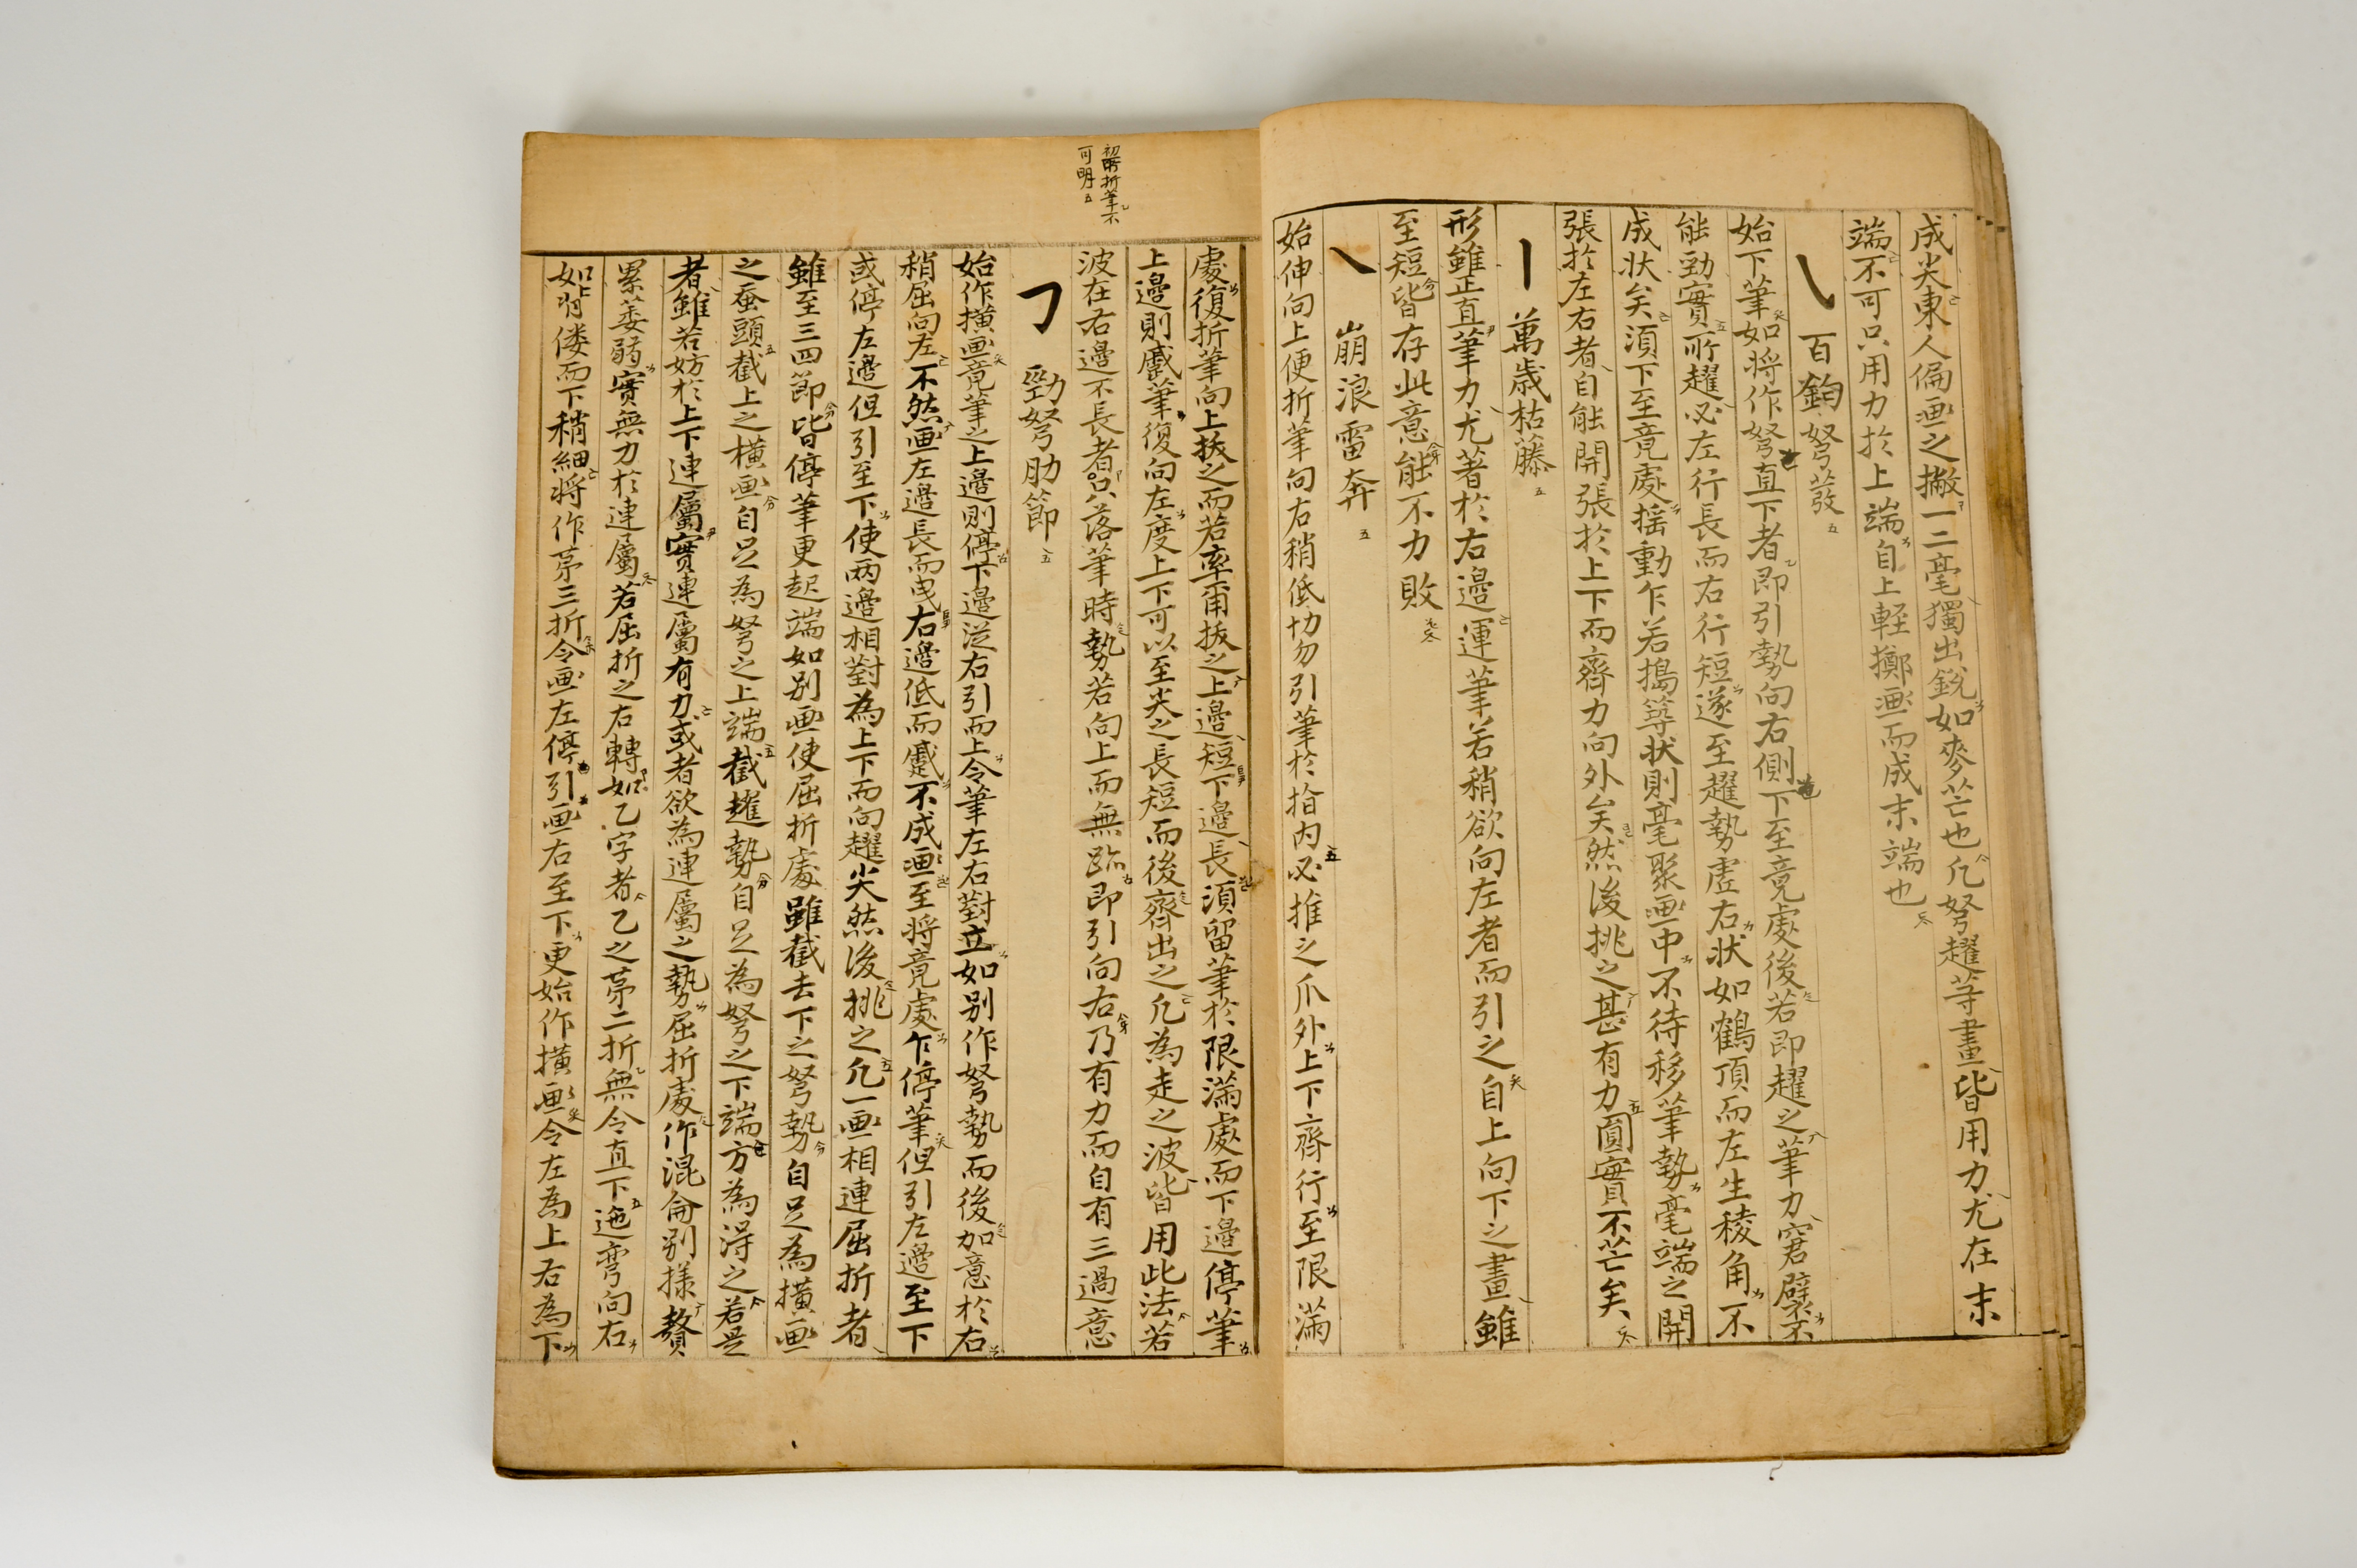 成尖東人偏画之撇一二毫獨出銳如麥芒也凡努趯等畫皆用力尤在末
端不可只用力於上端自上輕擲画而成末端也
百鈞弩𤼲
始下筆如將作努直下者即引勢向右側下至竟處後若即趯之筆力窘躄不
能勁實所趯必左行長而右行短遂至趯勢虛右狀如鶴頂而左生稜角不
成狀矣須下至竟處搖動乍若搗䓁狀則毫聚画中不待移筆勢毫端之開
張於左右者自能開張於上下而齊力向外矣然後挑之甚有力圓實不芒矣
丨 萬歲枯藤
形雖正直筆力尤著於右邊運筆若稍欲向左者而引之自上向下之畫雖
至短皆存此意能不力敗
㇏ 崩浪雷奔
始伸向上便折筆向右稍低切勿引筆於指內必推之爪外上下齊行至限滿
處復折筆向上㧞之而若率爾㧞之上邊短下邊長須留筆於限滿處而下邊停筆
上邊則蹙筆復向左度上下可以至尖之長短而後齊出之凡為走之波皆用此法若
波在右邊不長者只落筆時勢若向上而無臨即引向右乃有力而自有三過意
初折筆不
可明
㇆ 勁弩肋節
始作橫画竟筆之上邊則停下邊從右引而上令筆左右對立如別作努勢而後加意於右
稍屈向左不然画左邊長而曳右邊低而蹙不成画至將竟處乍停筆但引左邊至下
或停左邊但引至下使两邊相對為上下而向趯尖然後挑之凡一画相連屈折者
雖至三四節皆停筆更起端如別画使屈折處雖截去下之努勢自足為橫画
之蚕頭截上之橫画自足為努之上端截趯勢自足為努之下端方為得之若是
者雖若妨於上下連屬實連屬有力或者欲為連屬之勢屈折處作混侖別㨾贅
累萎弱實無力於連屬若屈折之右轉如乙字者乙之苐二折無令直下迤弯向右
如背僂而下稍細將作苐三折令画左停引画右至下更始作橫画令左為上右為下